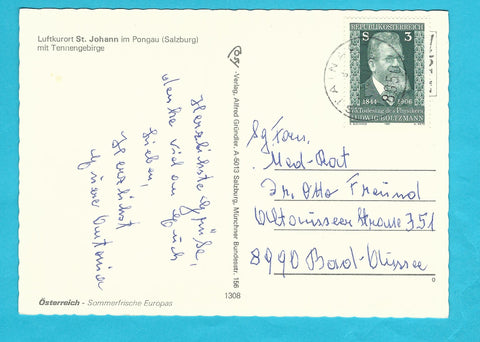 Luftkurort St. Johann im Pongau (Salzburg)
mit Tennengebirge
Herzlichste Grüße,
denke viel an Euch
Lieben,
Herzlichst
Cosy-Verlag, Alfred Gründler, A-5013 Salzburg, Münchner Bundesstr. 156
1308
Österreich - Sommerfrische Europas
REPUBLIK ÖSTERREICH
S 3
1844 1906
75. Todestag des Physikers
LUDWIG BOLTZMANN
STAINA
Sg Fam.
Med-Rat
Dr. Otto Freund
Altausseer Strasse 351
8990 Bad-Aussee